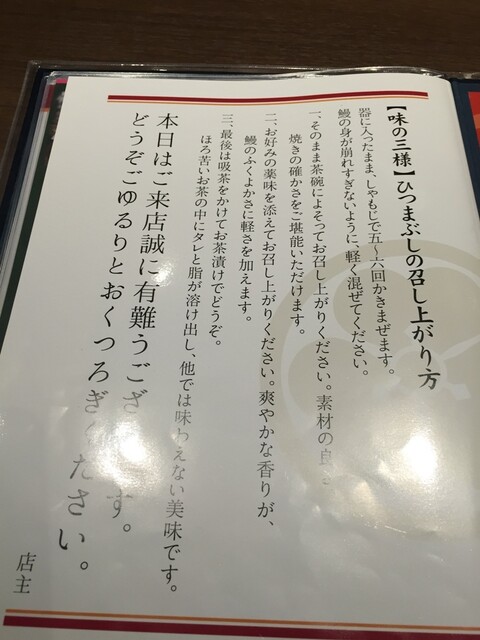 【味の三様】ひつまぶしの召し上がり方
器に入ったまま、しゃもじで五〜六回かきまぜます。
鰻の身が崩れすぎないように、軽く混ぜてください。
一、そのまま茶碗によそってお召し上がりください。素材の良さ
焼きの確かさをご堪能いただけます。
二、お好みの薬味を添えてお召し上がりください。爽やかな香りが、
鰻のふくよかさに軽さを加えます。
三、最後は吸茶をかけてお茶漬けでどうぞ。
ほろ苦いお茶の中にタレと脂が溶け出し、他では味わえない美味です。
本日はご来店誠に有難うございます。
どうぞごゆるりとおくつろぎください。
店主